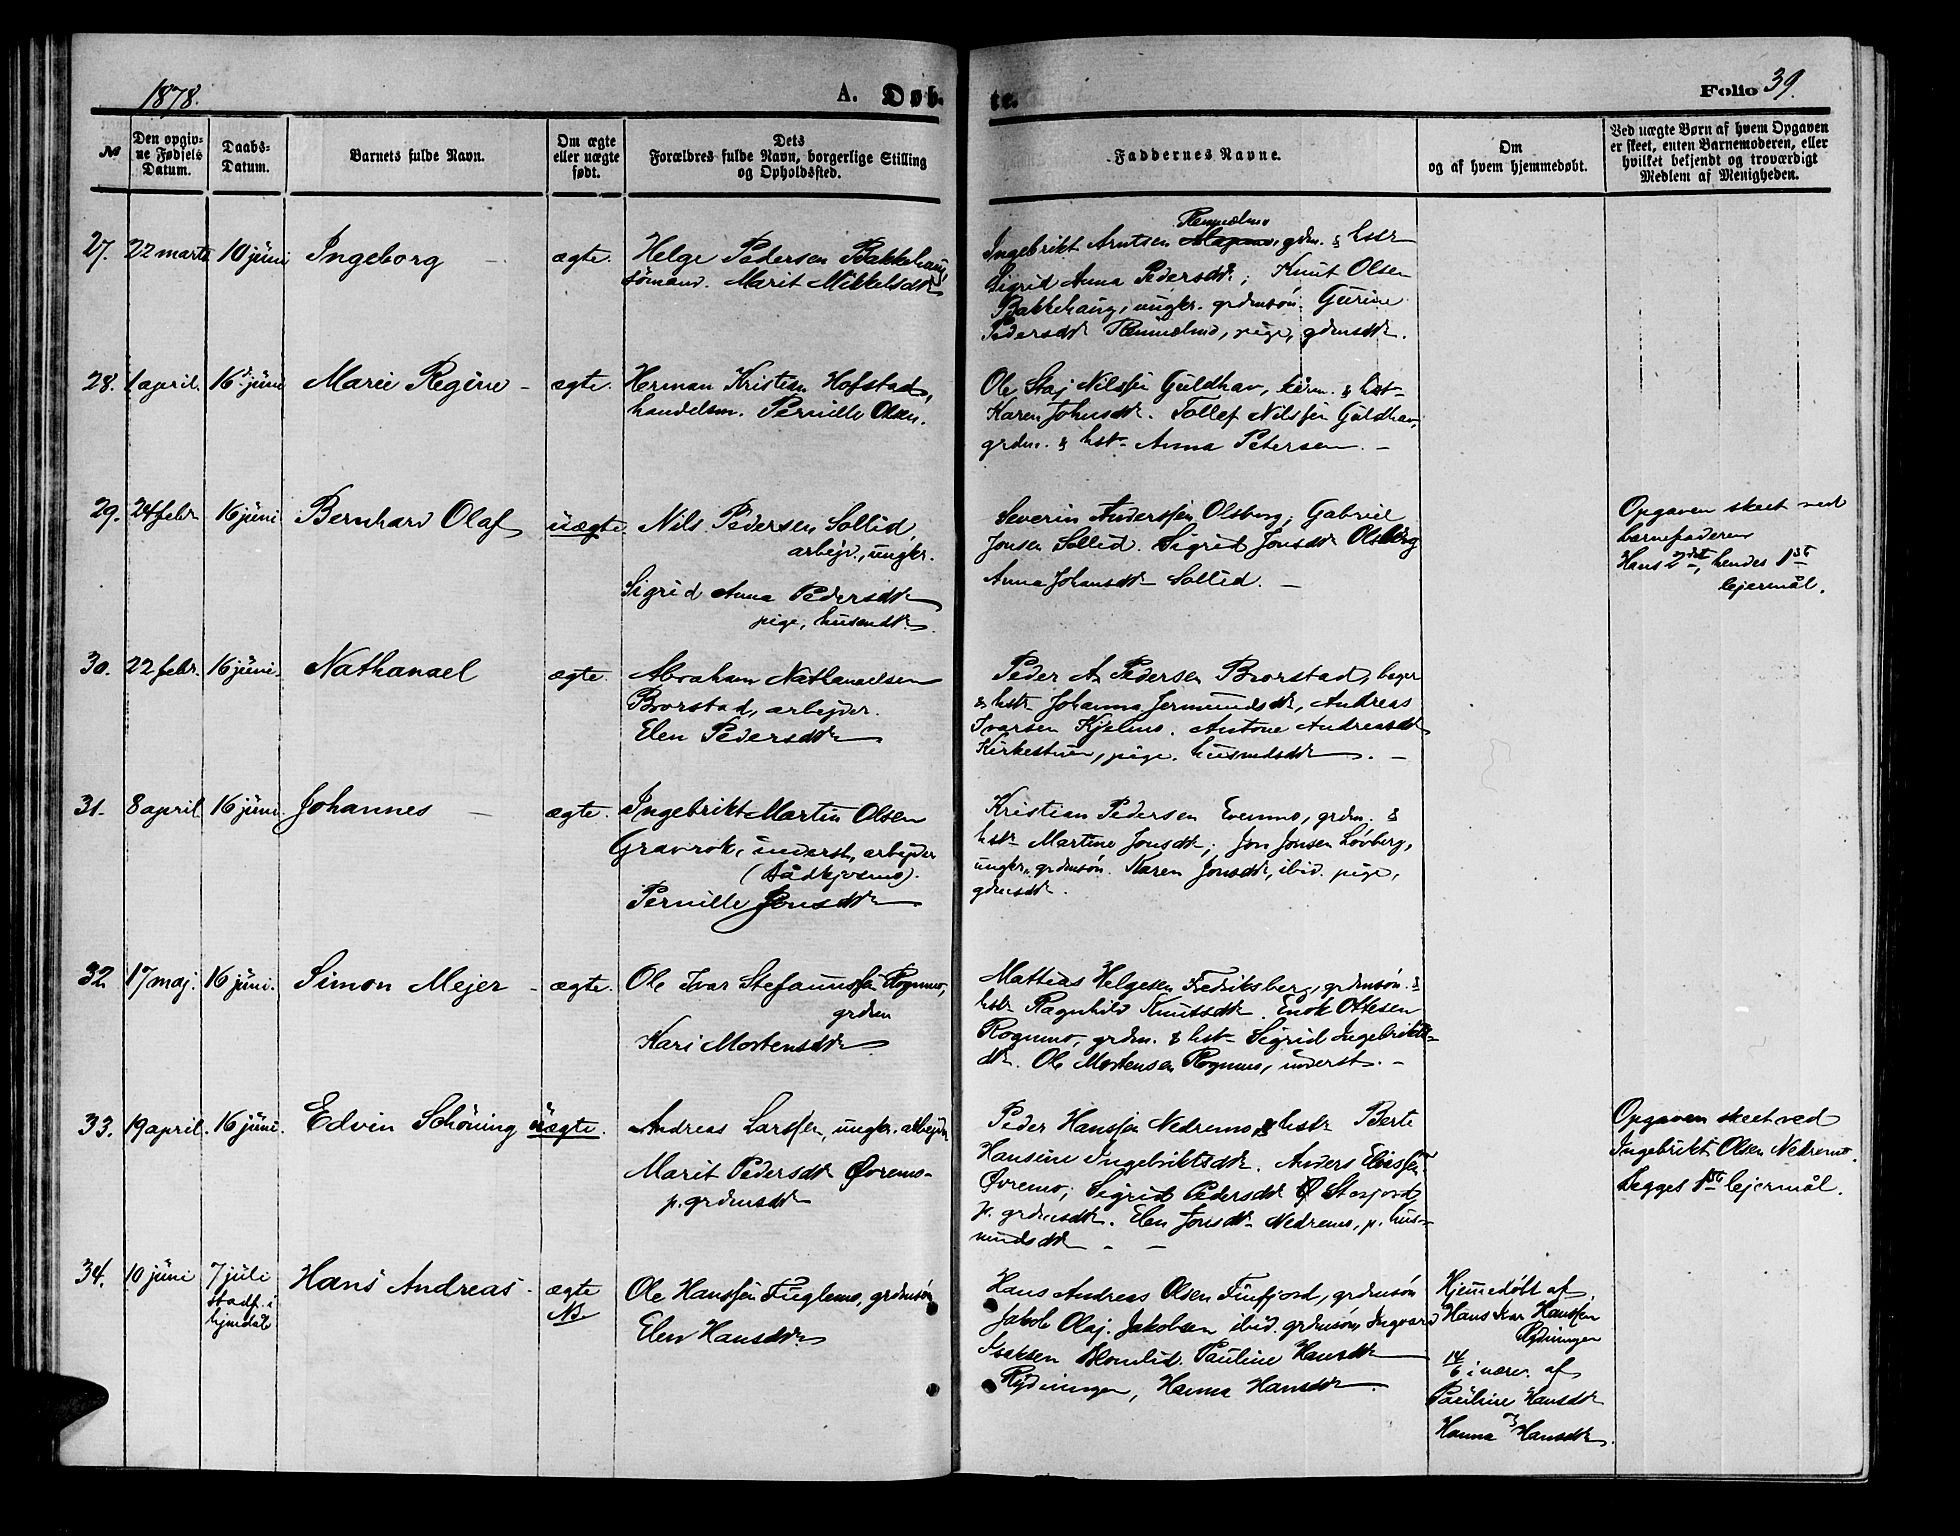 1878.
A. Døb-
te.
Folio 39.
No
Den opgiv-
ne Fødsels
Datum.
Daabs-
Datum.
Barnets fulde Navn.
Om ægte
eller uægte
født.
Dets
Forældres fulde Navn, borgerlige Stilling
og Opholdssted.
Faddernes Navne.
Om
og af hvem hjemmedøbt.
Ved uægte Børn af hvem Opgaven
er skeet, enten Barnemoderen, eller
hvilket bekjendt og troværdigt
Medlem af Menigheden.
27. 22 marts 10 juni Ingeborg - ægte.
Helge Pedersen Bakkehaug,
sømand. Marit Mikkelsdtr
Rennælmo
Ingebrikt Arntsen grdm. & hstr
Sigrid Anna Pedersdtr; Knut Olsen
Bakkehaug, ungkr. grdmsøn. Gurine
Pedersdtr Rennælmo, pige, gdmsdtr.
28. 1 april. 16d juni Marie Regine - ægte.
Herman Kristian Hofstad,
handelsm. Pernille Olsen.
Ole Staj Nilssen Guldhav, & hst-
Karen Johnsdtr. Tollef Nilssen Guldhav,
grdm. & hst- Anna Petersen. -
29. 24 febr 16 juni Bernhard Olaf uægte.
Nils Pedersen Sollid,
arbejd., ungkr.
Sigrid Anna Pedersdtr
pige, husmdtr.
Severin Anderssen Olsborg; Gabriel
Jonsen Sollid. Sigrid Jonsdtr Olsborg
Anna Johansdtr Sollid. -
Opgaven skeet ved
barnefaderen
Hans 2det, hendes 1ste
lejermål.
30. 22 febr. 16 juni. Nathanael ægte.
Abraham Nathanaelsen
Brorstad, arbejder.
Elen Pedersdtr
Peder A Pedersen Brorstad,
& hstr Johanna Jermundsdtr, Andreas
Ivarsen Kjelmo. Antone Andreasdtr
Kirkestuen, pige. husmdsdtr. -
31. 8 april 16 juni Johannes - ægte.
Ingebrikt Martin Olsen
Gravrok, inderst, arbejder
Pernille Jonsdtr
Kristian Pedersen Evenmo, grdm. &
hstr Martine Jonsdtr; Jon Jonsen Løvberg,
ungkr. grdmsøn. Karen Jonsdtr, ibid. pige,
gdmsdtr.
32 17 maj. 16 juni. Simon Mejer - ægte.
Ole Ivar Stefanussen Rognmo,
grdm
Kari Mortensdtr
Mattias Helgesen Fredriksberg, grdmsøn. &
hstr Ragnhild Knutsdtr. Enok Ottesen
Rognmo, grdm. & hst- Sigrid Ingebrikts-
dtr. Ole Mortensen Rognmo, inderst. -
33. 19 april. 16 juni. Edvin Schöning uægte.
Andreas Larssen, ungkr. arbejder
Marit Pedersdtr Øvremo-
p. grdmsdtr
Peder Hanssen Nedremo & hstr Berte
Hansine Ingebriktsdtr. Anders Eliassen
Øvremo; Sigrid Pedersdtr Storfjord,
p. grdmsdtr. Elen Jonsdtr Nedremo, p. hus-
mandsdtr - -
Opgaven skeet ved
Ingebrikt Olsen Nedremo.
Begges 1ste lejermål.
34. 10 juni 7 juli Hans Andreas - ægte
stadf. i
NB.
Ole Hanssen Fuglemo, grdmsøn
Elen Hansdtr
Hans Andreas Olsen Finfjord, grdmsøn
Jakob Olaj. Jakobsen ibid. grdmsøn, Ingvard
Isaksen Blomlid. Pauline Hansdtr
Rydningen, Hanna Hansdtr.
Hjemmedøbt af
Hans Ivar Hanssen
Rydningen
14/6 i nærv. af
Pauline Hansdtr
Hanna Hansdtr.